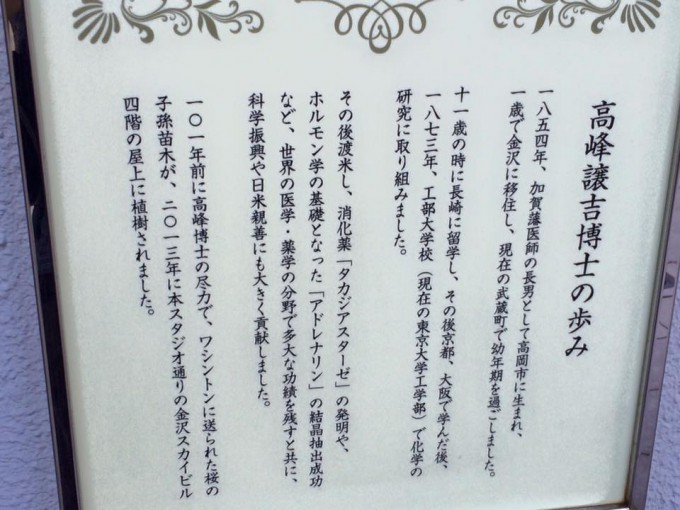 高峰譲吉博士の歩み
一八五四年、加賀藩医師の長男として高岡市に生まれ、
一歳で金沢に移住し、現在の武蔵町で幼年期を過ごしました。
十一歳の時に長崎に留学し、その後京都、大阪で学んだ後、
一八七三年、工部大学校（現在の東京大学工学部）で化学の
研究に取り組みました。
その後渡米し、消化薬「タカジアスターゼ」の発明や、
ホルモン学の基礎となった「アドレナリン」の結晶抽出成功
など、世界の医学・薬学の分野で多大な功績を残すと共に、
科学振興や日米親善にも大きく貢献しました。
一〇一年前に高峰博士の尽力で、ワシントンに送られた桜の
子孫苗木が、二〇一三年に本スタジオ通りの金沢スカイビル
四階の屋上に植樹されました。